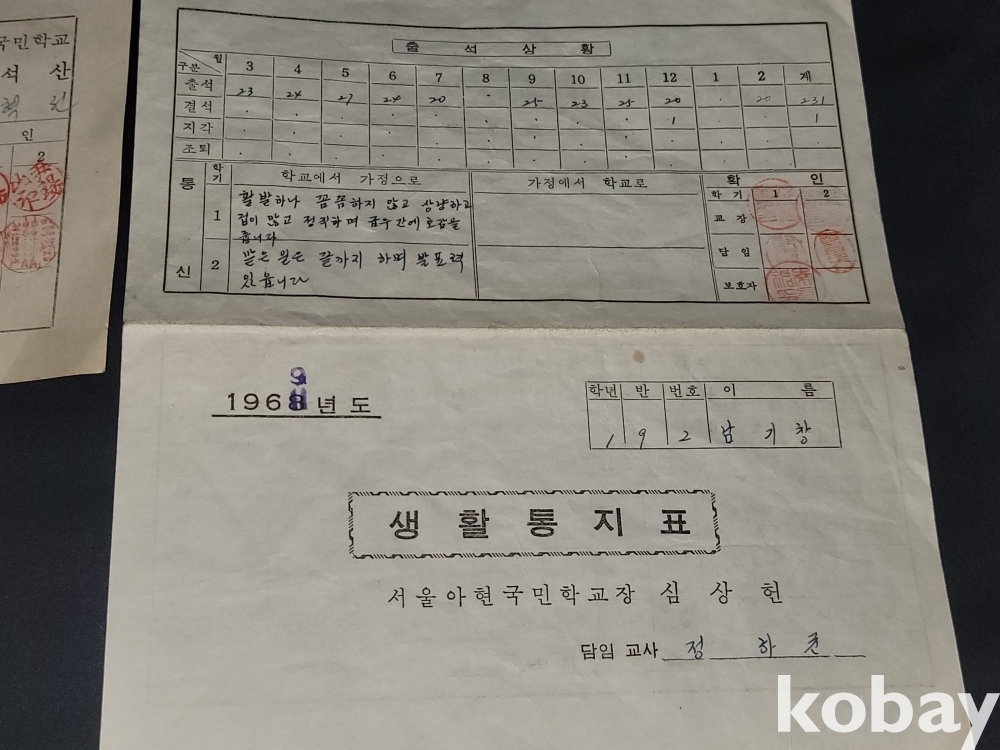 국민학교
석 산
인
2
출 석 상 황
구분 월 3 4 5 6 7 8 9 10 11 12 1 2 계
출석 23 24 27 24 20 · 25 23 25 20 · 20 231
결석 · · · · · · · · 1 · · 1
지각 · · · · · · · · · · ·
조퇴 · · · · · · · · · · ·
통 신
학기 학교에서 가정으로 가정에서 학교로
1 활발하나 꼼꼼하지 않고 상냥하고
겁이 많고 정직하며 급우간에 호감을
줍니다
2 맡은 일은 끝까지 하며 발표력
있읍니다
확 인
학 기 1 2
교 장
담 임
보호자
1969년 도
학년 반 번호 이 름
1 9 2 남 기 창
생 활 통 지 표
서울아현국민학교장 심 상 헌
담임 교사 정 하
kobay